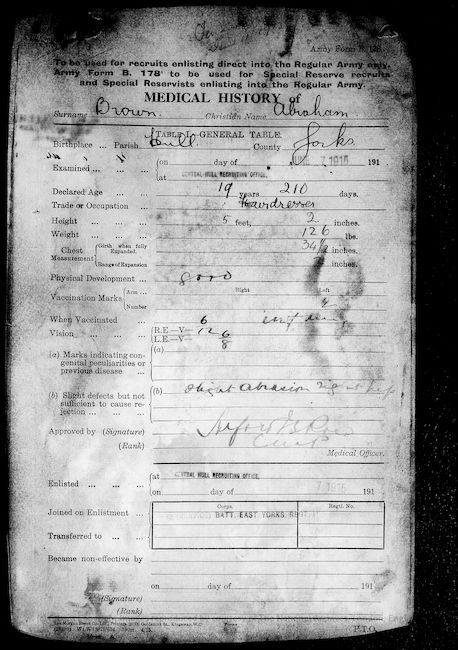 Army Form B. 178.
To be used for recruits enlisting direct into the Regular Army only.
Army Form B. 178A to be used for Special Reserve recruits
and Special Reservists enlisting into the Regular Army.
MEDICAL HISTORY of
Surname Brown Christian Name Abraham
TABLE I.—GENERAL TABLE.
Birthplace ... Parish Hull County Yorks
Examined ... ... ... on day of JUNE 7 1915 191
at CENTRAL HULL RECRUITING OFFICE,
Declared Age ... ... 19 years 210 days.
Trade or Occupation ... Hairdresser
Height ... ... ... 5 feet, 2 inches.
Weight ... ... ... 126 lbs.
Chest Measurement Girth when fully Expanded. 34½ inches.
Range of Expansion inches.
Physical Development ... good
Vaccination Marks Arm ... Right Left
Number
When Vaccinated ...
Vision ... ... ... R.E.—V— 6 12
L.E.—V— 6 8
(a) Marks indicating congenital peculiarities or previous disease (a)
(b) Slight defects but not sufficient to cause rejection ... ... (b) Slight Abrasion right
Approved by (Signature)
(Rank)
Medical Officer.
Enlisted ... ... ... at CENTRAL HULL RECRUITING OFFICE,
on day of 7 1915 191
Joined on Enlistment ... Corps. Regtl. No.
BATT. EAST YORKS. REGT.
Transferred to ... ...
Became non-effective by
on day of 191
(Signature)
(Rank)
P.T.O.